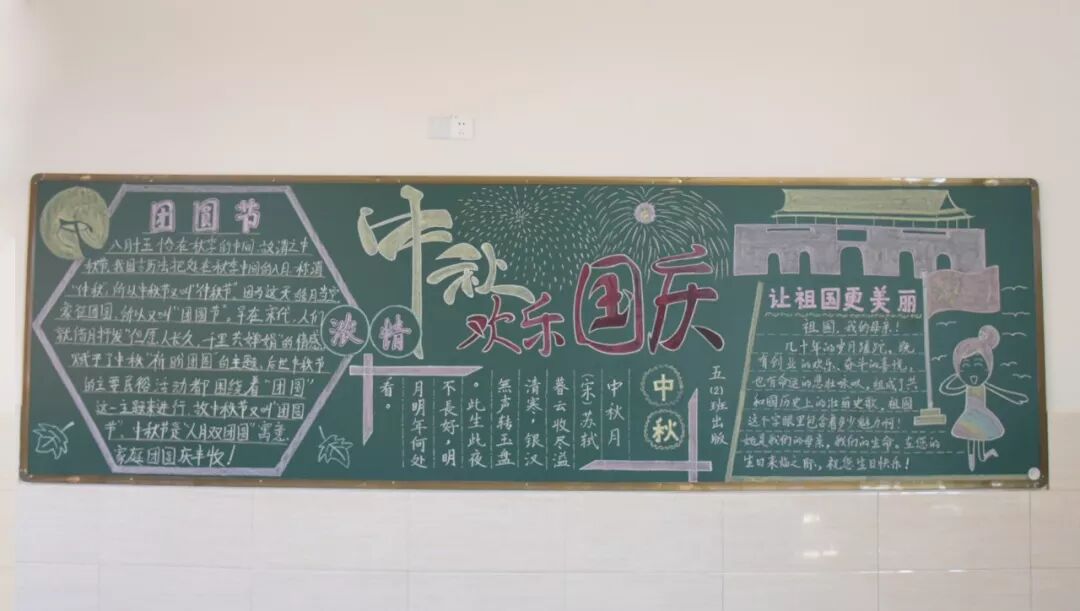 团圆节
八月十五恰在秋季的中间,故谓之中
秋节.我国古历法把处在秋季中间的八月,称谓
"仲秋",所以中秋节又叫"仲秋节"。因为这天皓月当空
家庭团圆,所以又叫"团圆节"。早在宋代,人们
就借月抒发"但愿人长久,千里共婵娟"的情感
赋予了"中秋"祈盼团圆的主题,后世中秋节
的主要民俗活动都围绕着"团圆"
这一主题来进行.故中秋节又叫"团圆
节"、中秋节是"人月双团圆"寓意
家庭团圆庆丰收!
浓情
中秋
欢乐国庆
五(2)班出版
中秋
中秋月
(宋)苏轼
暮云收尽溢
清寒,银汉
無声转玉盘
。此生此夜
不長好,明
月明年何处
看。
让祖国更美丽
祖国,我的母亲!
几十年的岁月蹉跎,既
有创业的欢乐、奋斗的喜悦,
也有命运的悲壮咏叹,组成了共
和國历史上的壮丽史歌,祖國
这个字眼里包含着多少魅力啊!
她是我们的母亲,我们的生命,在您的
生日来临之际,祝您生日快乐!